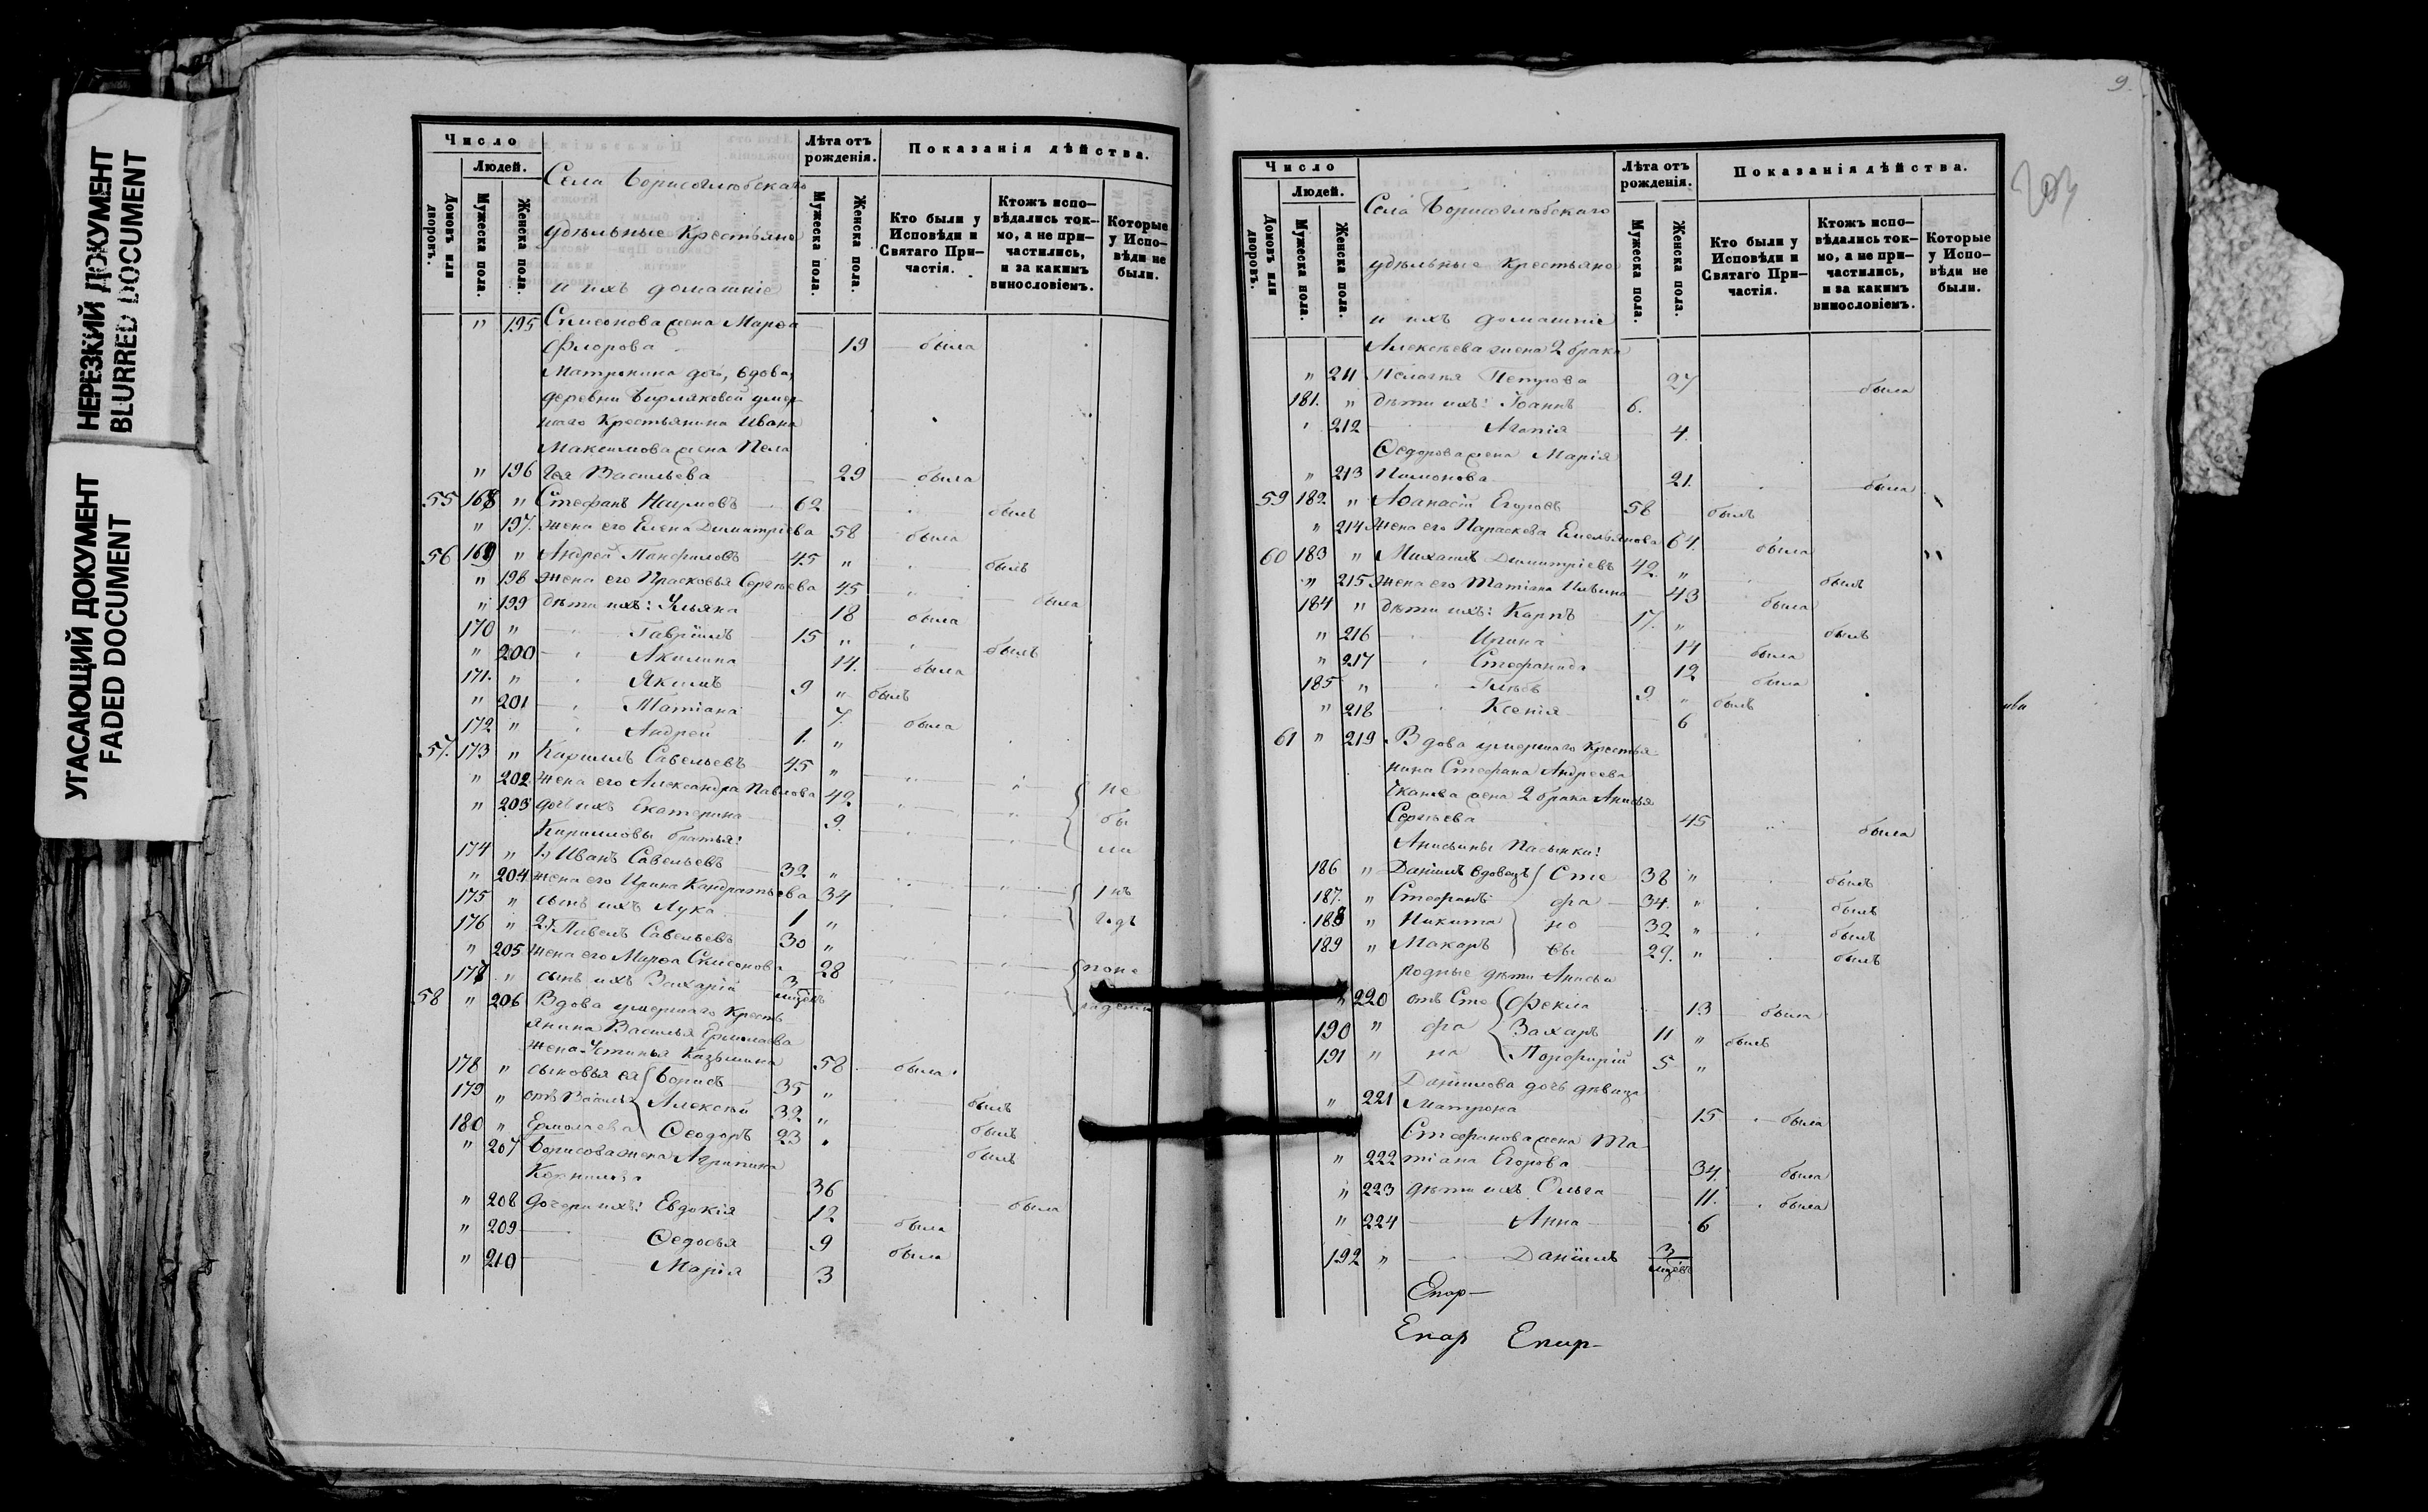 НЕРЕЗКИЙ ДОКУМЕНТ
BLURRED DOCUMENT
УГАСАЮЩИЙ ДОКУМЕНТ
FADED DOCUMENT
Число
Людей.
Домовъ или дворовъ.
Мужеска пола.
Женска пола.
Села Борисоглѣбскаго
удѣльные Крестьяне
и ихъ домашніе
Лѣта отъ рожденія.
Мужеска пола.
Женска пола.
Показанія дѣйства.
Кто были у Исповѣди и Святаго При-частія.
Ктожъ испо-вѣдались ток-мо, а не при-частились, и за какимъ винословіемъ.
Которые у Испо-вѣди не были.
" 195 Симеонова жена Марѳа
Флорова 19 была
Матронина дочь, вдова,
деревни умер-
шаго Крестьянина Ивана
Максимова жена Пела
" 196 гея Васильева 29 была
55 168 " Стефанъ Наумовъ 62 былъ
" 197. жена его Елена Димитріева 58 была
56 169 " Андрей Панфиловъ 45 " былъ
" 198 жена его Прасковья Сергѣева 45 была
" 199 дѣти ихъ: Ульяна 18 была
170 " Гавріилъ 15 " былъ
" 200 Акилина 14. была
171. " Якимъ 9 " былъ
" 201 Татіана 7. была
172 " Андрей 1. "
57. 173 " Кириллъ Савельевъ 45 "
" 202 жена его Александра Павлова 42 не
" 203 дочь ихъ Екатерина 9. бы
Кирилловы братья: ли
174 " 1.) Иванъ Савельевъ 32 "
" 204 жена его Ирина Кандратьева 34 1нъ
175 " сынъ ихъ Лука 1 " годъ
176 " 2.) Павелъ Савельевъ 30 "
" 205 жена его Марѳа Симеонова 28 поне
177 " сынъ ихъ Захарій 3 мѣсъ
58 " 206 Вдова умершаго Кресть
янина Василья Ермолаева
жена Устинья Казьмина 58 была
178 " сыновья ея Борисъ 35 " былъ
179 " отъ Василья Алексѣй 32 " былъ
180 " Ермолаева Ѳеодоръ 23 былъ
" 207 Борисова жена Агрипина
Корнилова 36 была
" 208 дочери ихъ: Евдокія 12 была
" 209 Ѳедосья 9 была
" 210 Марія 3
9.
203
Число
Людей.
Домовъ или дворовъ.
Мужеска пола.
Женска пола.
Села Борисоглѣбскаго
удѣльные Крестьяне
и ихъ домашніе
Лѣта отъ рожденія.
Мужеска пола.
Женска пола.
Показанія дѣйства.
Кто были у Исповѣди и Святаго При-частія.
Ктожъ испо-вѣдались ток-мо, а не при-частились, и за какимъ винословіемъ.
Которые у Испо-вѣди не были.
Алексѣева жена 2 брака
" 211 Пелагея Петрова 27 была
181. " дѣти ихъ: Іоаннъ 6.
" 212 Агапія 4.
Ѳедорова жена Марія
" 213 Пимонова 21. была
59 182 " Аѳанасій Егоровъ 58 былъ
" 214 жена его Параскева Емельянова 64. была
60 183 " Михаилъ Димитріевъ 42. " былъ
" 215 жена его Татіана Ильина 43 была
184 " дѣти ихъ: Карпъ 17. " былъ
" 216 Ирина 14 была
" 217 Стефанида 12 была
185 " Глѣбъ 9 " былъ
" 218 Ксенія 6
61 " 219 Вдова умершаго Крестья
нина Стефана Андреева
жена 2 брака Анисья
Сергѣева 45 была
Анисьины Пасынки:
186 " Даніилъ вдовецъ Сте 38 " былъ
187. " Стефанъ фа 34. " былъ
188 " Никита но 32 " былъ
189 " Макаръ вы 29. " былъ
родные дѣти Анисьи
" 220 отъ Сте Фекла 13 была
190 " фа Захаръ 11 " былъ
191 " на Порфирій 5 "
Данилова дочь дѣвица
" 221 Матрона 15 была
Стефанова жена Та-
" 222 тіана Егорова 34. была
" 223 дѣти ихъ Ольга 11. была
" 224 Анна 6
192 " Даніилъ 3 мѣсъ
Епар-
Епар Епар-